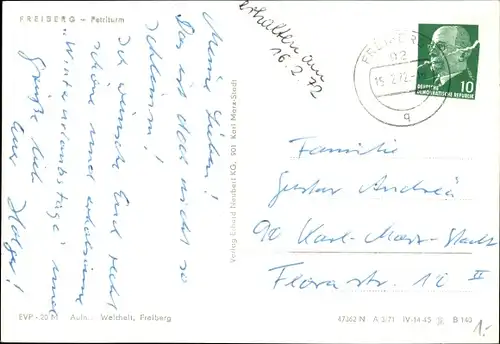 FREIBERG – Petriturm
Meine Lieben!
Das ist doch nicht so
schlimm!
Ich wünsche Euch recht
schöne und erholsame
"Winterurlaubstage" und
grüße lieb
Euer Holger!
EVP -,20 M Aufn.: Weichelt, Freiberg
Verlag Erhard Neubert KG, 901 Karl-Marx-Stadt
erhalten am
16.2.72
15.2.72
a
DEUTSCHE
DEMOKRATISCHE REPUBLIK
10
Familie
Gustav Andreä
90 Karl-Marx-Stadt
Florastr. 12 II
47362 N A 3/71 IV-14-45 B 140
1.-